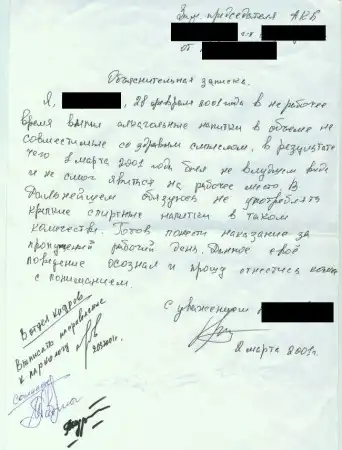 Зам. председателя АКБ
от
Объяснительная записка.
Я, 28 февраля 2001 года в не рабочее
время выпил алкогольные напитки в объеме не
совместимые со здравым смыслом, в результате
чего 1 марта 2001 года был не в лучшем виде
и не смог явиться на рабочее место. В
дальнейшем обязуюсь не употреблять
крепкие спиртные напитки в таком
количестве. Готов понести наказание за
пропущенный рабочий день. Данное своё
поведение осознал и прошу отнестись
с пониманием.
С уважением
2 марта 2001г.
В отдел кадров
Выписать направление
к наркологу